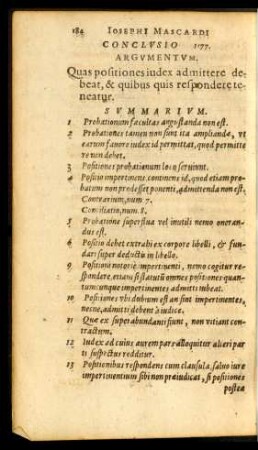 184 IOSEPHI MASCARDI
CONCLVSIO 1177.
ARGVMENTVM.
Quas positiones iudex admittere de-
beat, & quibus quis respondere te-
neatur.
SVMMARIVM.
1 Probationum facultas angustanda non est.
2 Probationes tamen non sunt ita amplianda, vt
earum fauore iudex id permittat, quod permitte
re non debet.
3 Positiones probationum loco seruiunt.
4 Positio impertinens, continens id, quod etiam pro-
batum non prodesset ponenti, admittenda non est.
Contrarium, num. 7.
Conciliatio, num. 8.
5 Probatione superflua vel inutili nemo oneran-
dus est.
6 Positio debet extrahi ex corpore libelli, & fun-
dari super deductis in libello.
9 Positioni notoriè impertinenti, nemo cogitur re-
spondere, etiam si statutũ omnes positiones quan-
tumcunque impertinentes admitti iubeat.
10 Positiones vbi dubium est an sint impertinentes,
necne, admitti debent à iudice.
11 Quæ ex superabundanti fiunt, non vitiant con-
tractum.
12 Iudex ad cuius aurem pars alloquitur alteri par-
ti suspectus redditur.
13 Positionibus respondens cum clausula, saluo iure
impertinentium sibi non praiudicat, si positiones
postea